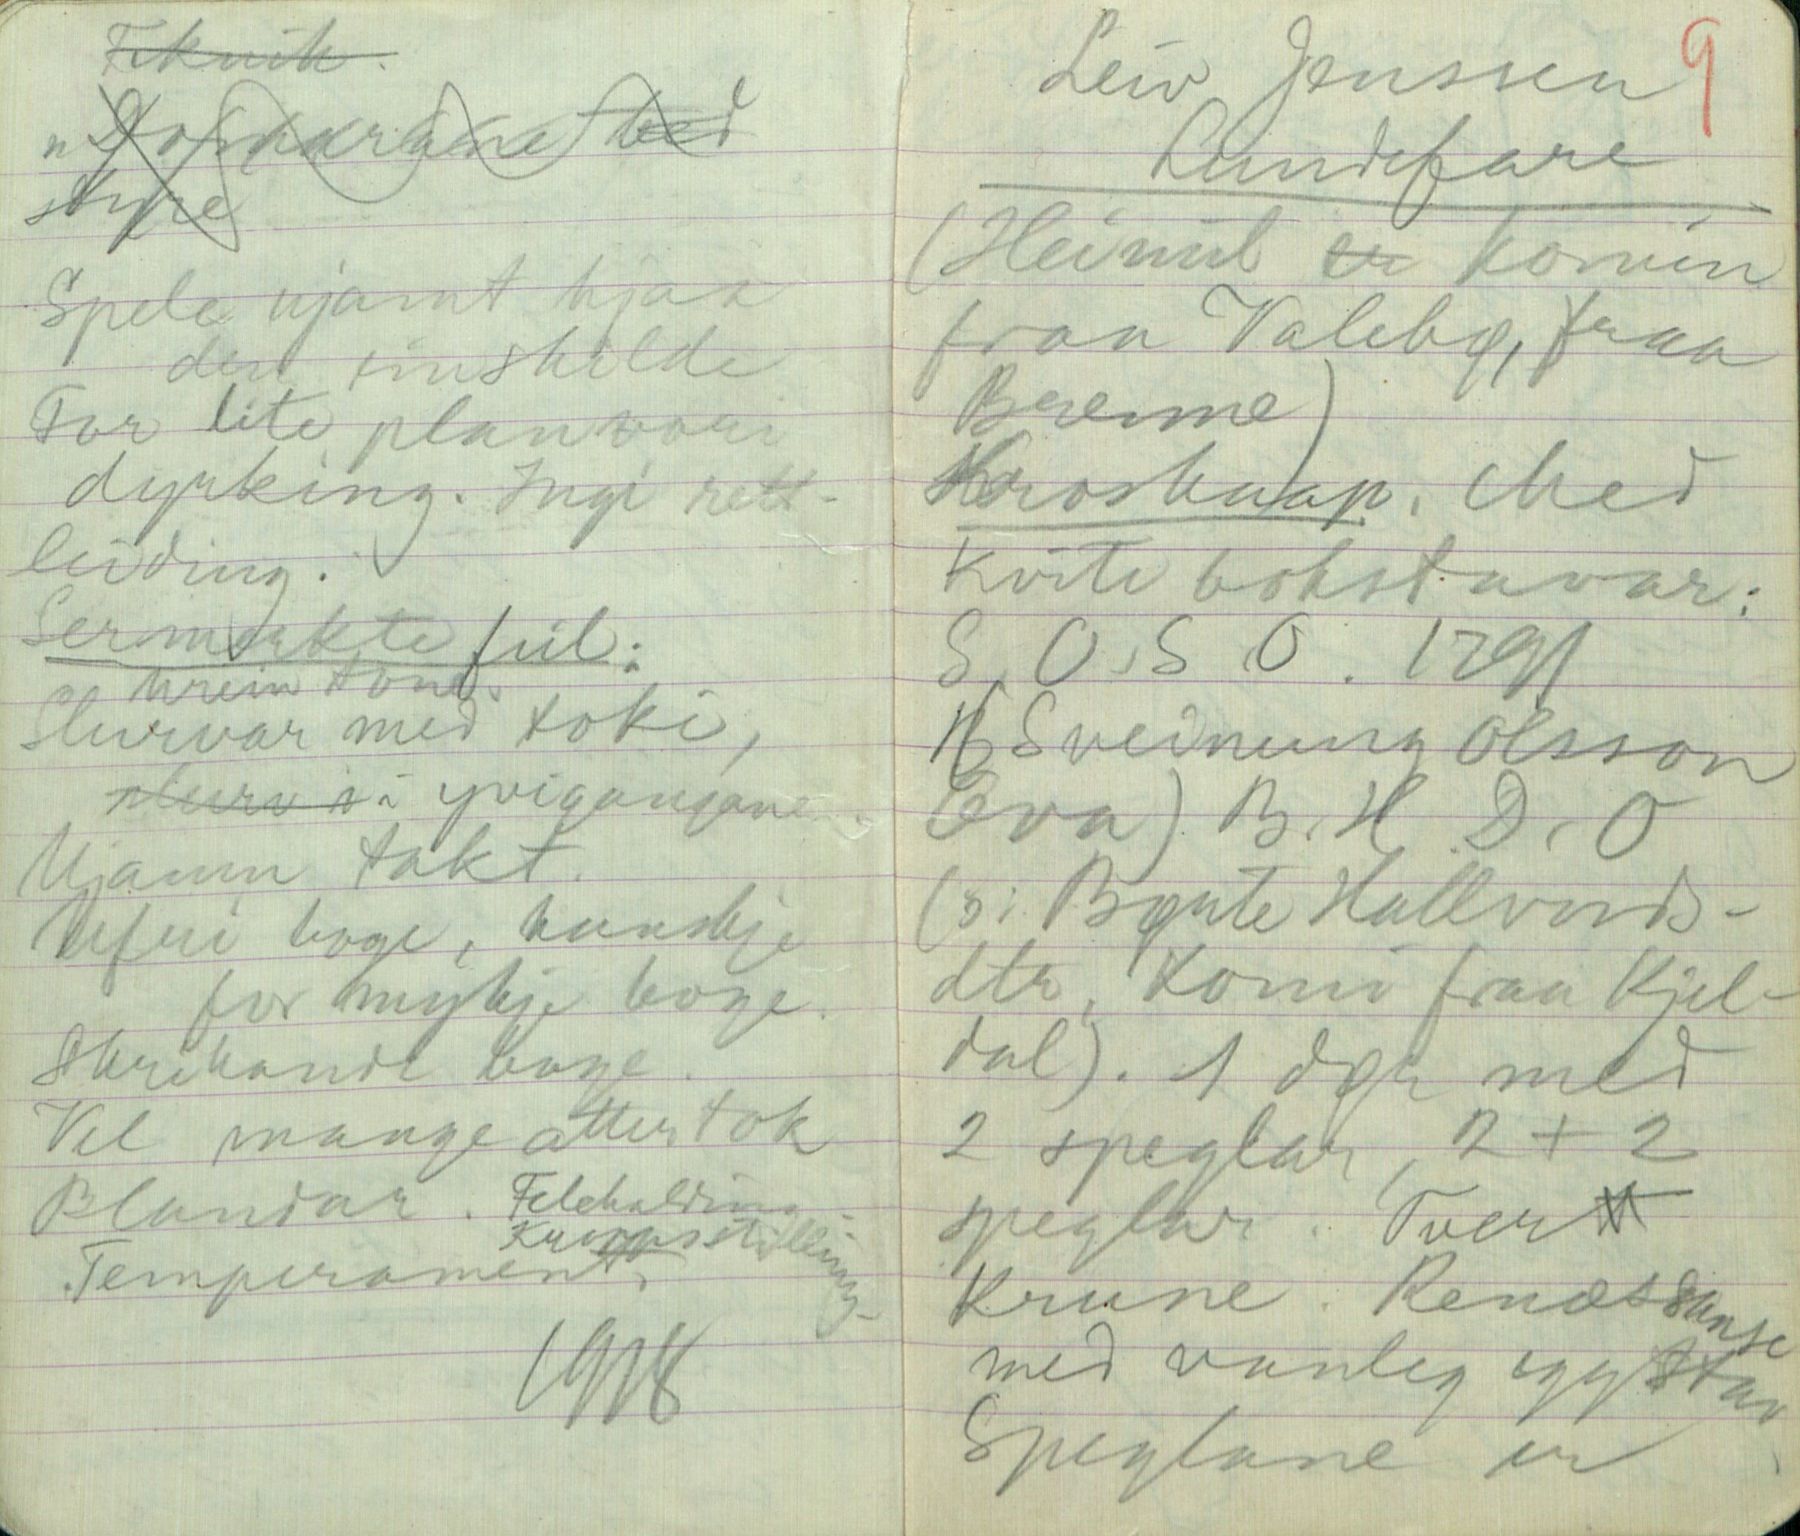 Teknik.
styre
Spele ujamt hjaa
den einskilde
For lite planvori
dyrking. Ingi rett-
leiding.
Sermerkte feil:
urein tone.
Slurvar med toki,
slurv i yvigangane.
Ujamn takt.
Ufri boge, kanskje
for mykje boge.
Skrikande boge.
Vel mange attertok
Blandar. Felehalding.
Kroppsstilling
Temperament.
1918
9
Leiv Jenssen
Lundefare
(Heimil er komin
fraa Valebø, fraa
Bereime)
Hroskaap. Med
kvite bokstavar:
S. O. S. O. 1791
Sveinung Olsson
Eva) B. H. D. O
(ɔ: Bgnte Hallvords-
dtr, komi fraa Kjel-
dal). 1 dør med
2 speglar, 2 + 2
speglar. Tver
Krune. Renæssanse
med vanleg eggstav
Speglane er